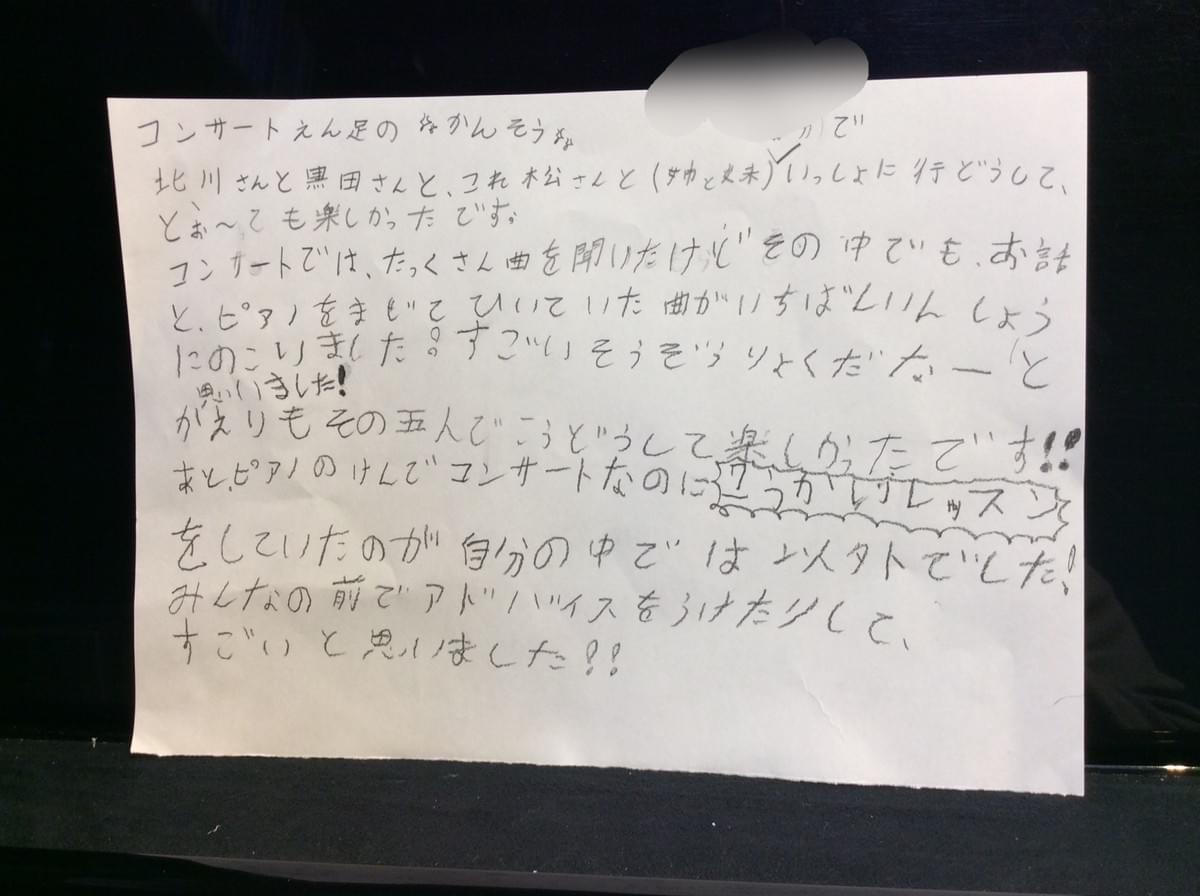 コンサートえん足の かんそう
で
北川さんと黒田さんと、これ松さんと(姉と妹)いっしょに行どうして、
とぉ〜ても楽しかったです。
コンサートでは、たっくさん曲を聞いたけど その中でも、お話
と、ピアノをまじてひいていた曲がいちばんいんしょう
にのこりました。すごいそうぞうりょくだなーと
思いました!
がえりもその五人でこうどうして楽しかったです!!
あと、ピアノのけんでコンサートなのに レッスン
をしていたのが自分の中では以外でした!
みんなの前でアドバイスをうけたりして、
すごいと思いました!!